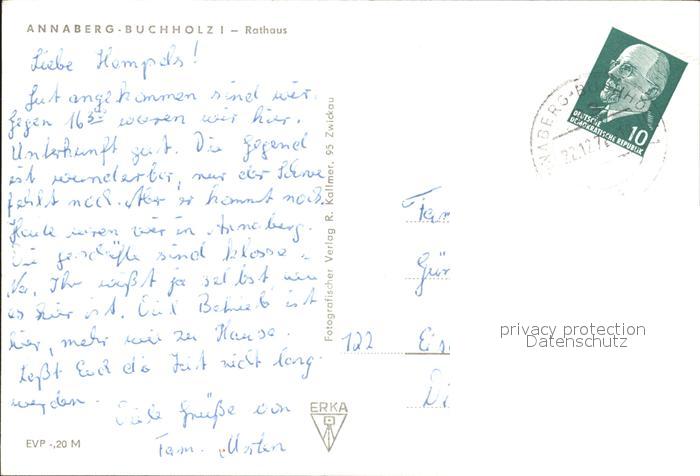 ANNABERG-BUCHHOLZ I – Rathaus
Liebe Hempels!
Gut angekommen sind wir.
Gegen 16 waren wir hier.
Unterkunft gut. Die Gegend
ist wunderbar, nur der Schnee
fehlt noch. Aber er kommt noch.
Heute waren wir in Annaberg.
Die Geschäfte sind klasse.
Na, Ihr wißt ja selbst wie
es hier ist. Viel Betrieb ist
hier, mehr wie zu Hause.
Laßt Euch die Zeit nicht lang
werden. Viele Grüße von
Fam.
EVP -,20 M
Fotografischer Verlag R. Kallmer, 95 Zwickau
ERKA
DEUTSCHE
DEMOKRATISCHE REPUBLIK
10
Fam
Gün
122 Eis
Di
privacy protection
Datenschutz